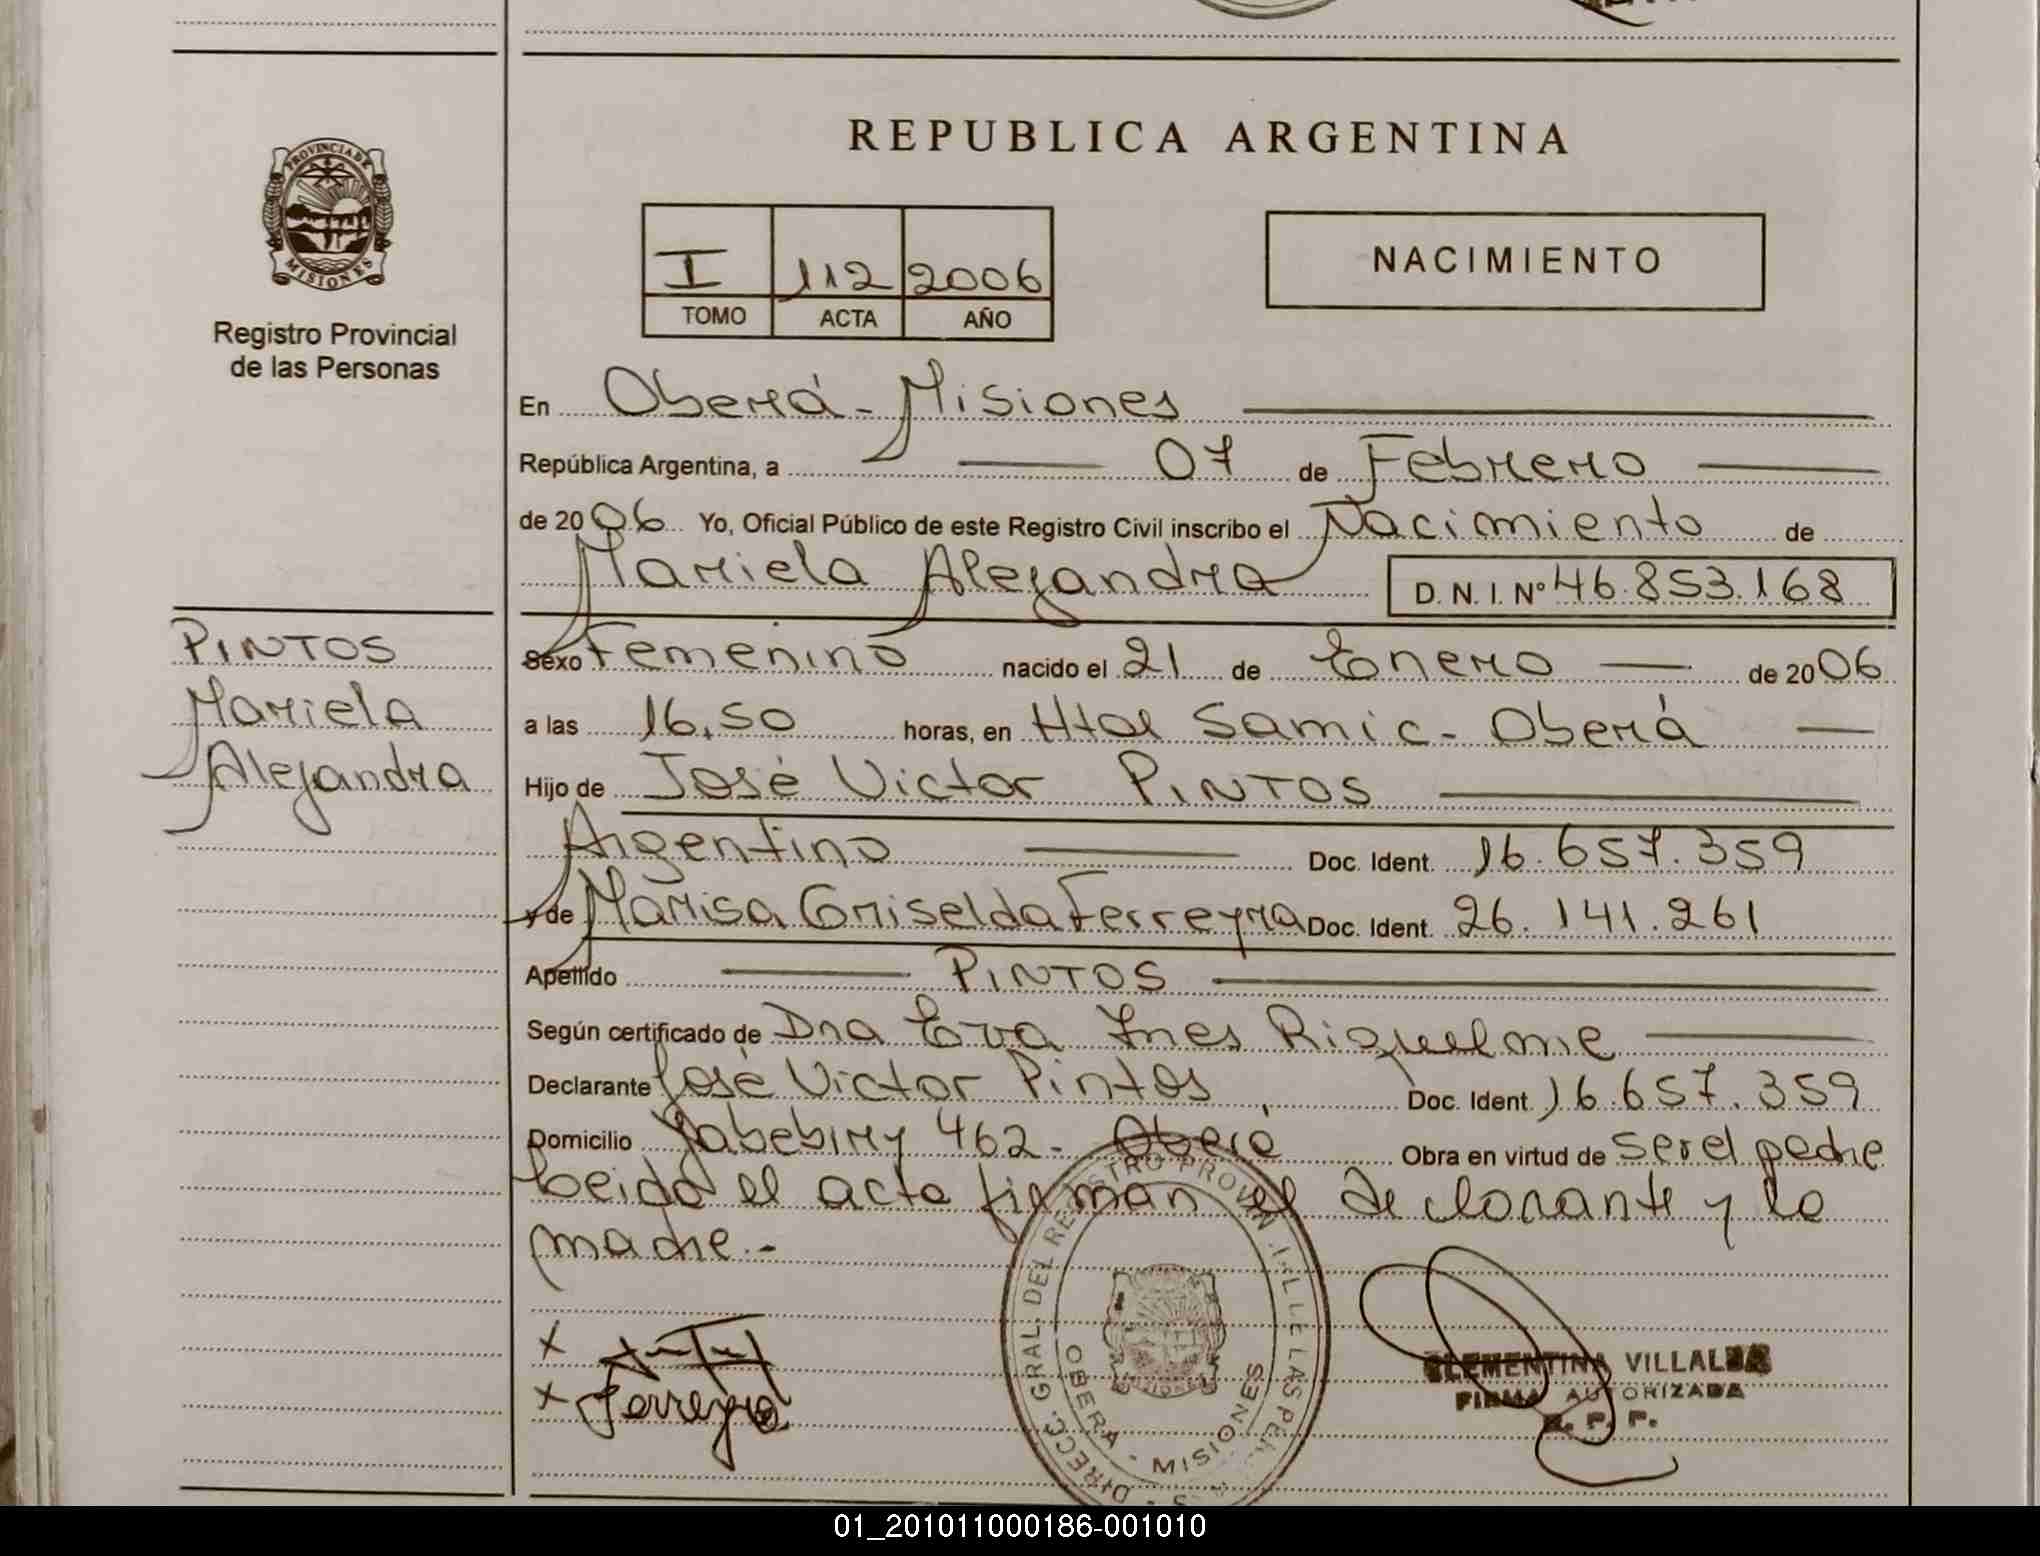 PROVINCIA DE
MISIONES
Registro Provincial
de las Personas
PINTOS
Mariela
Alejandra
REPUBLICA ARGENTINA
I 112 2006
TOMO ACTA AÑO
NACIMIENTO
En Oberá - Misiones
República Argentina, a 07 de Febrero
de 2006 Yo, Oficial Público de este Registro Civil inscribo el Nacimiento de
Mariela Alejandra D. N. I. Nº 46.853.168
Sexo Femenino nacido el 21 de Enero de 2006
a las 16,50 horas, en Htal Samic - Oberá
Hijo de José Victor PINTOS
Argentino Doc. Ident. 16.657.359
y de Marisa Griselda Ferreyra Doc. Ident. 26.141.261
Apellido PINTOS
Según certificado de Dra Eva Ines Riquelme
Declarante José Victor Pintos, Doc. Ident. 16.657.359
Domicilio Yabebiry 462 - Oberá Obra en virtud de ser el padre
Leida el acta firman el declarante y la
madre.-
x
x Ferreyra
DIRECC. GRAL. DEL REGISTRO PROVINCIAL DE LAS PER
OBERA - MISIONES
CLEMENTINA VILLALBA
FIRMA AUTORIZADA
R. P. P.
01_201011000186-001010